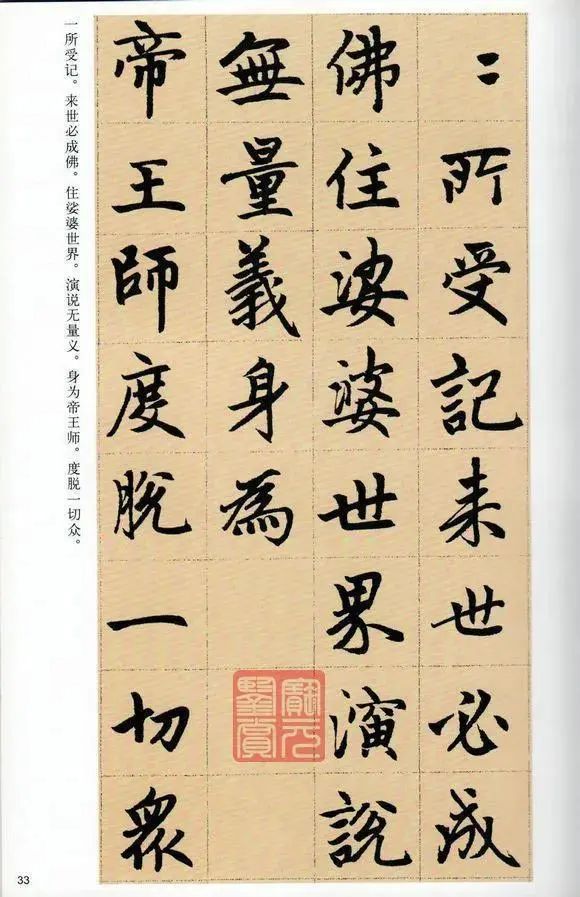 〻所受記来世必成
佛住娑婆世界演說
無量義身為
帝王師度脫一切眾
一所受记。来世必成佛。住娑婆世界。演说无量义。身为帝王师。度脱一切众。
33